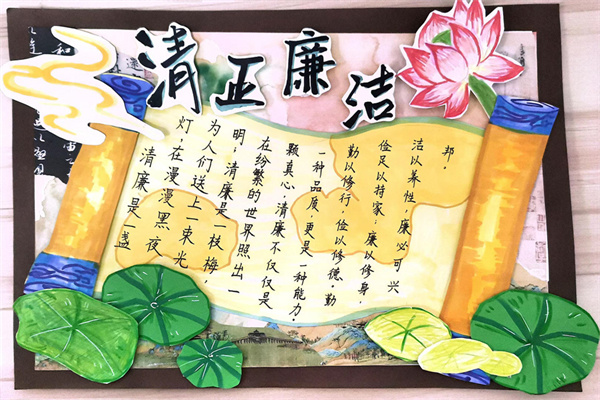 清正廉洁
清廉是一盏
灯,在漫漫黑夜
为人们送上一束光
明;清廉是一枝梅,
在纷繁的世界照出一
颗真心,清廉不仅仅是
一种品质,更是一种能力。
勤以修行,俭以修德,勤
俭足以持家,廉以修身,
洁以养性,廉必可兴
邦。